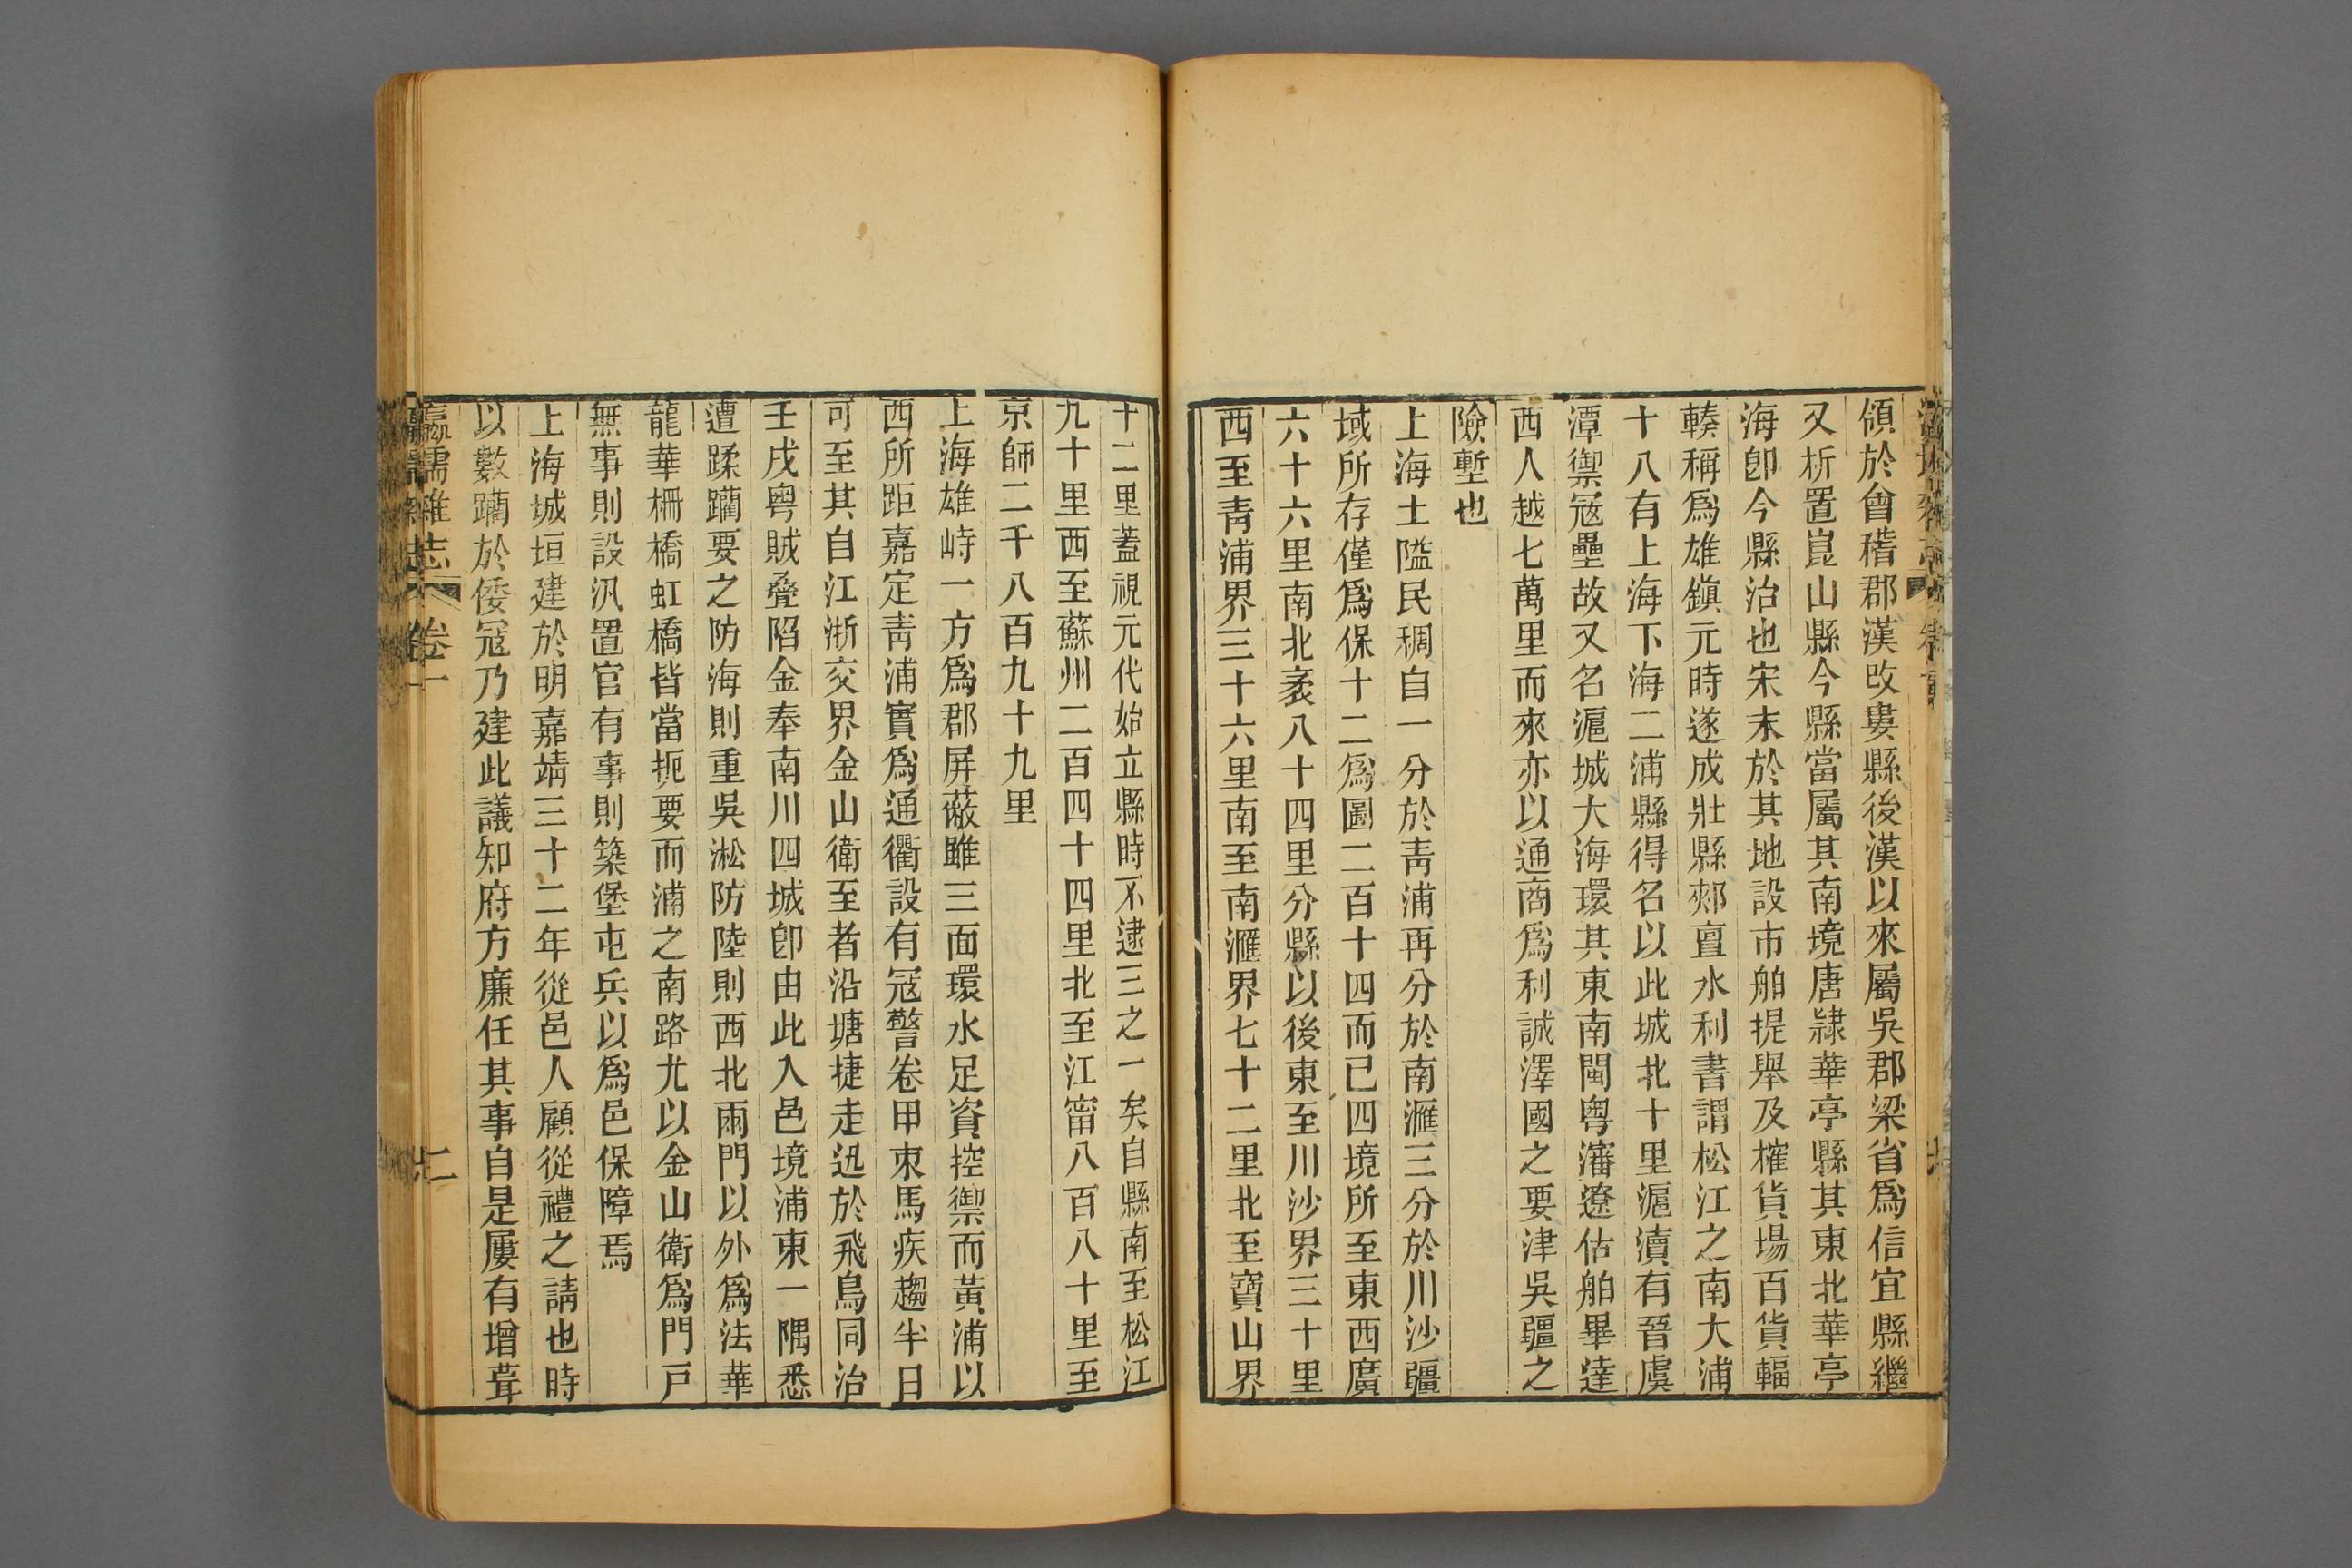 領於會稽郡漢改婁縣後漢以來屬吳郡梁省爲信宜縣繼
又析置崑山縣今縣當屬其南境唐隷華亭縣其東北華亭
海卽今縣治也宋末於其地設市舶提舉及榷貨場百貨輻
輳稱爲雄鎭元時遂成壯縣郟亶水利書謂松江之南大浦
十八有上海下海二浦縣得名以此城北十里滬瀆有晉虞
潭禦寇壘故又名滬城大海環其東南閩粤瀋遼估舶畢達
西人越七萬里而來亦以通商爲利誠澤國之要津吳疆之
險塹也
上海土隘民稠自一分於靑浦再分於南滙三分於川沙疆
域所存僅爲保十二爲圖二百十四而已四境所至東西廣
六十六里南北袤八十四里分縣以後東至川沙界三十里
西至靑浦界三十六里南至南滙界七十二里北至寶山界
十二里蓋視元代始立縣時不逮三之一矣自縣南至松江
九十里西至蘇州二百四十四里北至江甯八百八十里至
京師二千八百九十九里
上海雄峙一方爲郡屏蔽雖三面環水足資控禦而黃浦以
西所距嘉定靑浦實爲通衢設有寇警卷甲束馬疾趨半日
可至其自江浙交界金山衛至者沿塘捷走迅於飛鳥同治
壬戌粤賊疊陷金奉南川四城卽由此入邑境浦東一隅悉
遭蹂躪要之防海則重吳淞防陸則西北兩門以外爲法華
龍華柵橋虹橋皆當扼要而浦之南路尤以金山衛爲門戸
無事則設汛置官有事則築堡屯兵以爲邑保障焉
上海城垣建於明嘉靖三十二年從邑人顧從禮之請也時
以數躪於倭寇乃建此議知府方廉任其事自是屢有增葺
瀛壖雜志 卷一 二